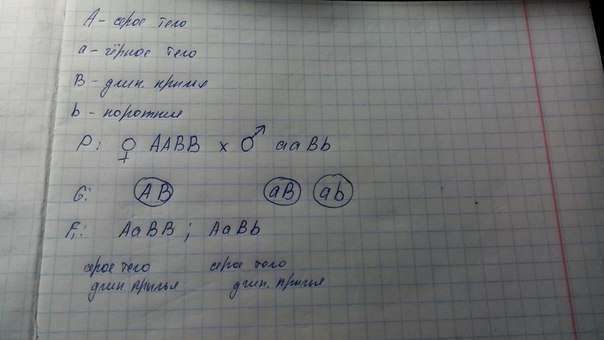 A - серое тело
a - чёрное тело
B - длин. крылья
b - короткие
P: ♀ AABB x ♂ aaBb
G: AB aB ab
F₁: AaBB ; AaBb
серое тело серое тело
длин. крылья длин. крылья